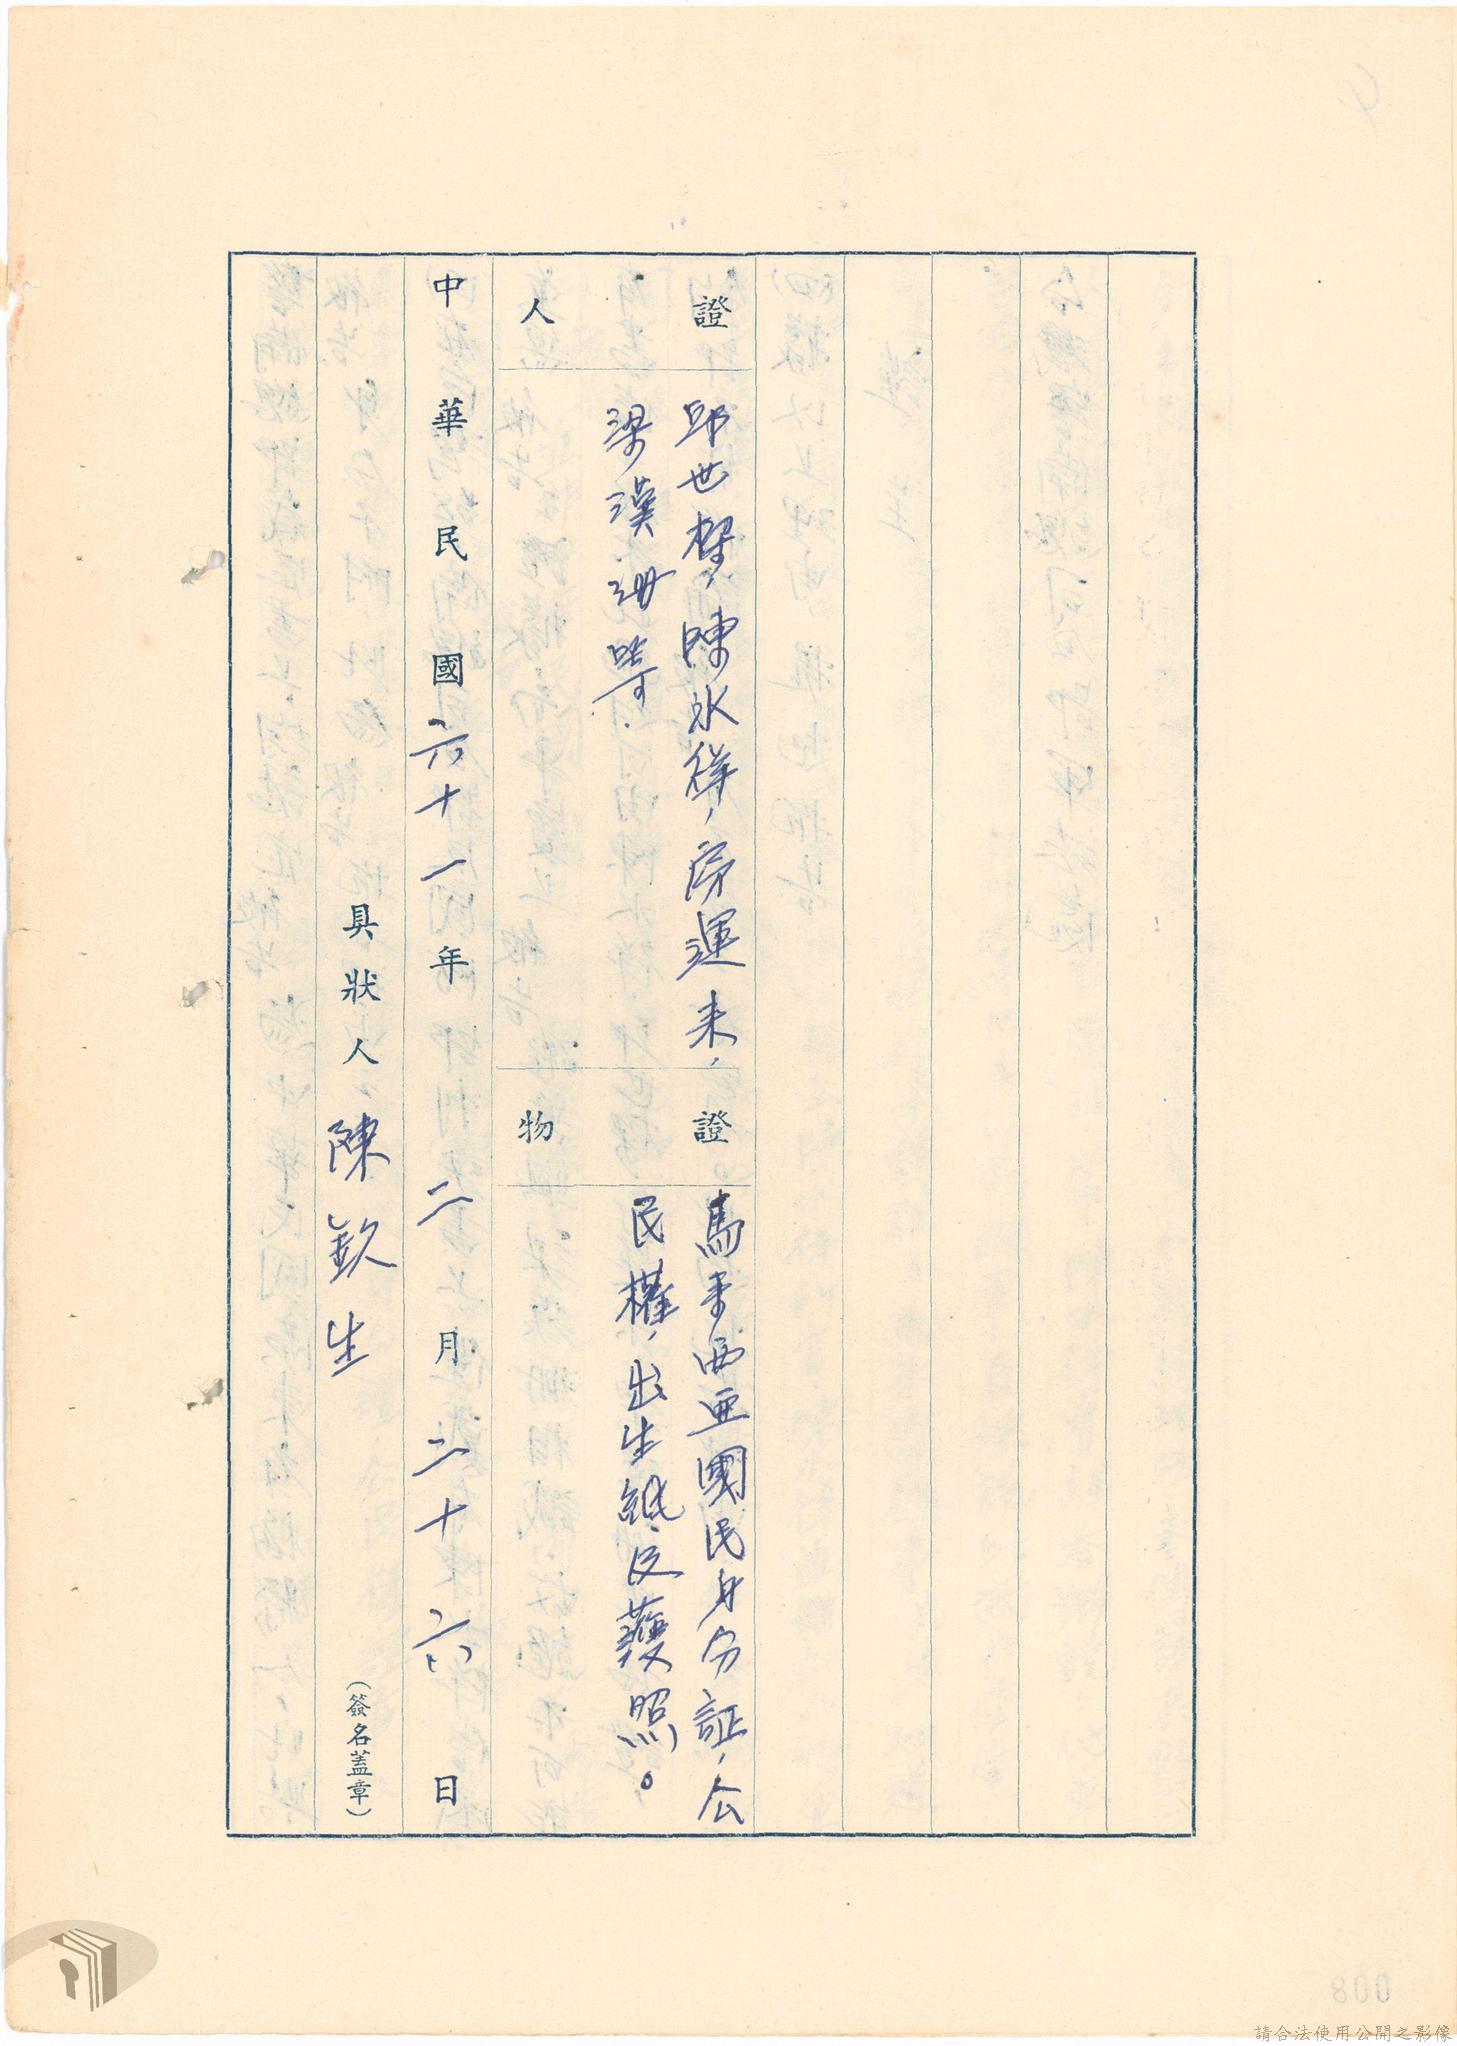 證人
邱世傑，陳水祥，序運來，
梁漢珊等.
證物
馬來西亞國民身分証，公
民權，出生紙及護照。
中華民國六十一年二月二十六日
具狀人、陳欽生（簽名蓋章）
請合法使用公開之影像